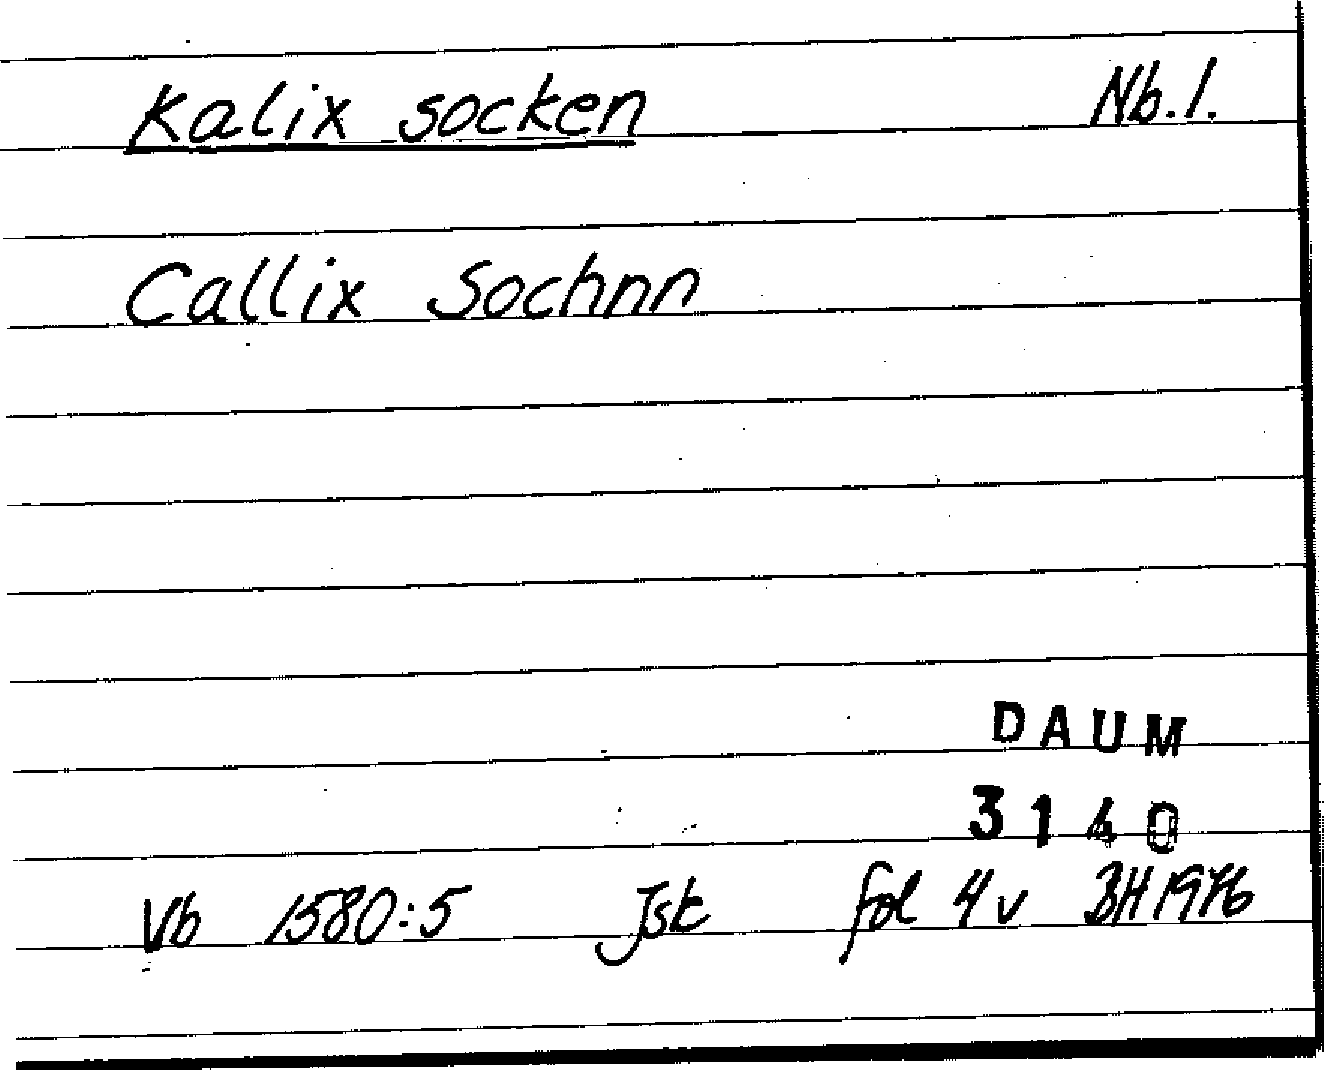 Kalix socken Nb.l.
Callix Sochnn
DAUM
3140
Vb 1580:5 Jsk fol 4v BH 1976